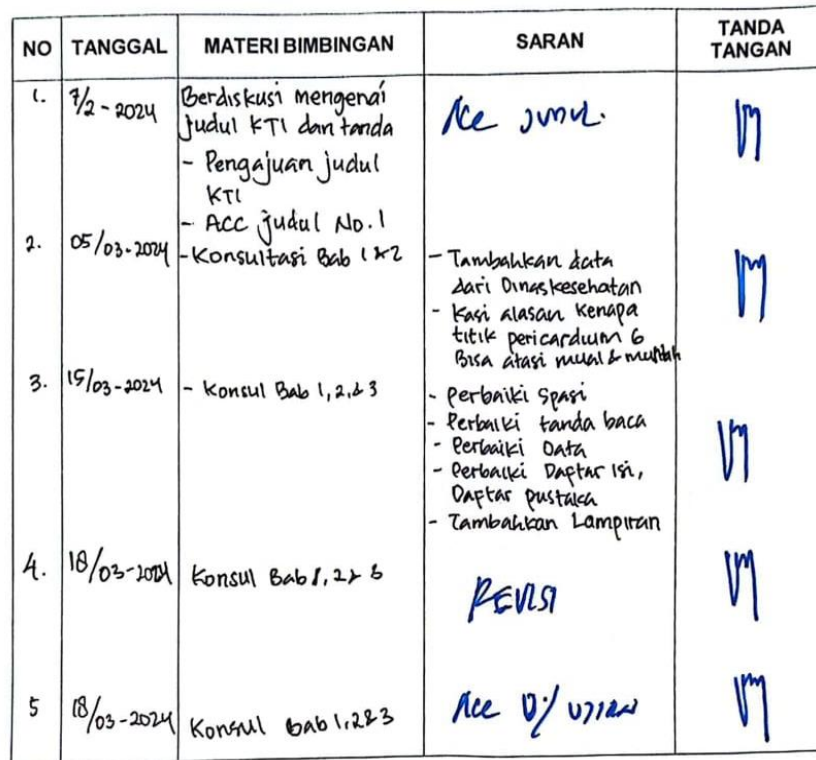 NO TANGGAL MATERI BIMBINGAN SARAN TANDA TANGAN
1. 7/2 - 2024 Berdiskusi mengenai
judul KTI dan tanda
- Pengajuan judul
KTI
- ACC judul No. 1
Acc JUDUL.
2. 05/03-2024 - Konsultasi Bab 1 & 2
- Tambahkan data
dari Dinas kesehatan
- Kasi alasan kenapa
titik pericardium 6
Bisa atasi mual & muntah
3. 15/03-2024 - Konsul Bab 1, 2, & 3
- Perbaiki Spasi
- Perbaiki tanda baca
- Perbaiki Data
- Perbaiki Daftar Isi,
Daftar pustaka
- Tambahkan Lampiran
4. 18/03-2024 Konsul Bab 1, 2 & 3
REVISI
5 18/03-2024 Konsul Bab 1, 2 & 3
Acc U/ UJIAN